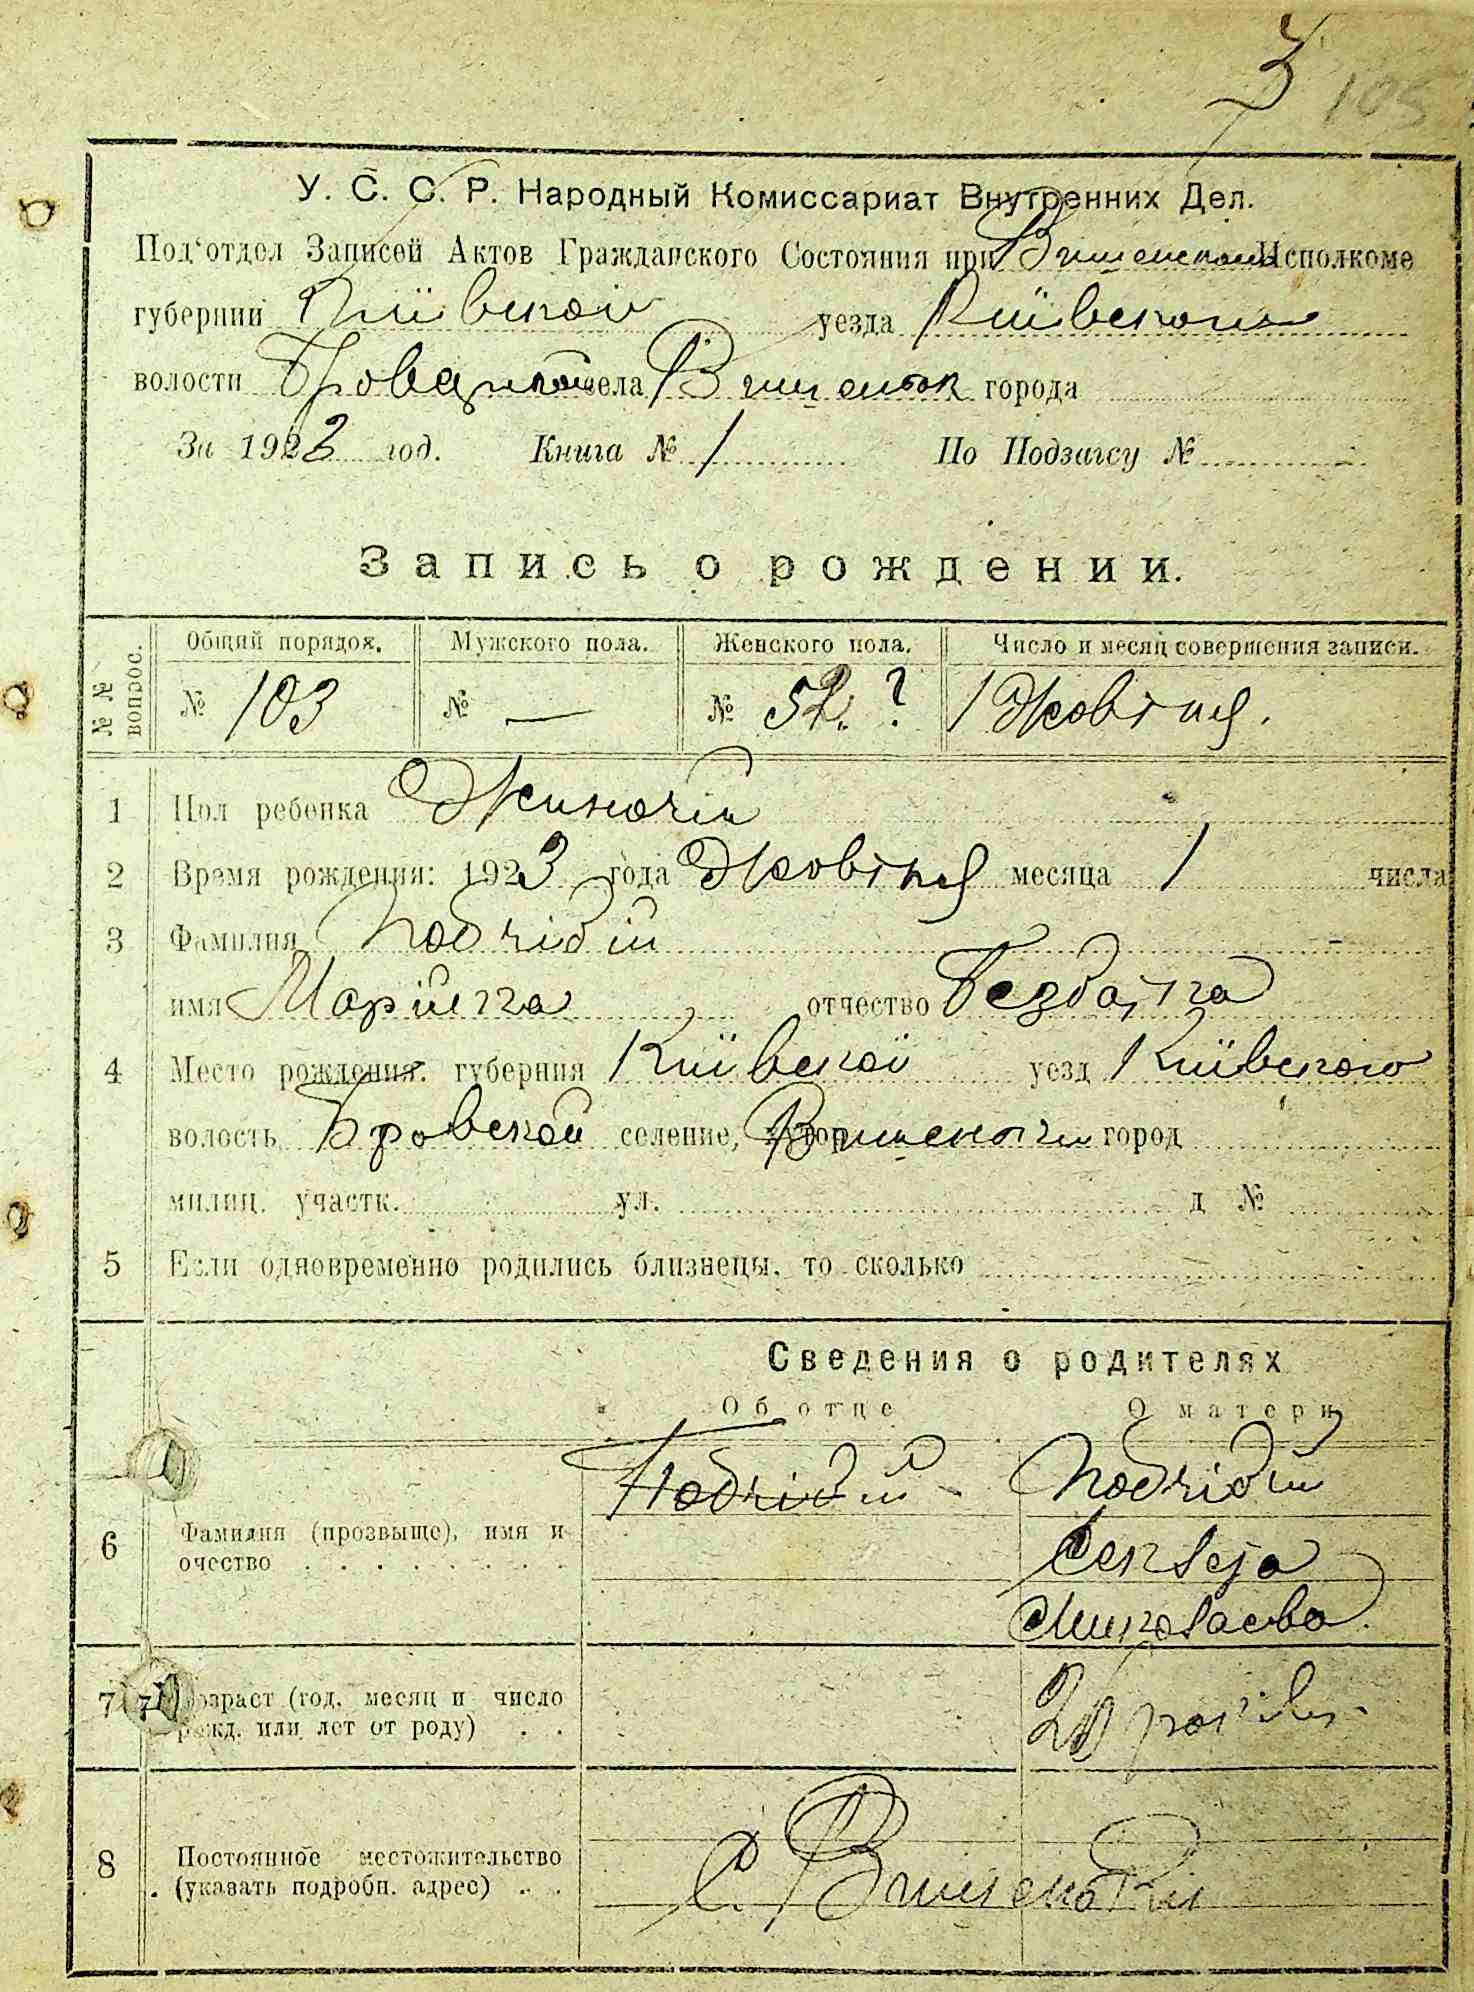 3 105
У. С. С. Р. Народный Комиссариат Внутренних Дел.
Под'отдел Записей Актов Гражданского Состояния при Вишенском Исполкоме
губернии Київской уезда Київского
волости села Вишеньок города
За 1923 год. Книга № 1 По Подзагсу №
Запись о рождении.
№№ вопрос. Общий порядок. Мужского пола. Женского пола. Число и месяц совершения записи.
№ 103 № — № 52. ? 1 Жовтня.
1 Пол ребенка Жиночій
2 Время рождения: 1923 года Жовтня месяца 1 числа
3 Фамилия
имя Марійка отчество Безбатька
4 Место рождения: губерния Київской уезд Київского
волость Бровской селение, хутор Вишеньки город
милиц. участк. ул. д №
5 Если одновременно родились близнецы, то сколько
Сведения о родителях
Об отце О матери
6 Фамилия (прозвыще), имя и
очество
Миколаева
7 Возраст (год, месяц и число
рожд. или лет от роду)
8 Постоянное местожительство
(указать подробн. адрес)
С. Вишеньки